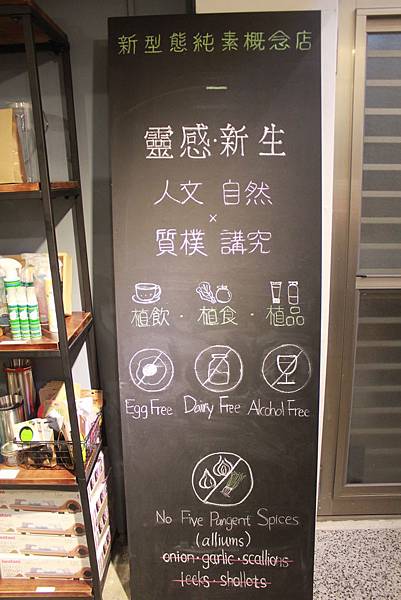 新型態純素概念店
靈感·新生
人文 自然
×
質樸 講究
植飲 · 植食 · 植品
Egg Free Dairy Free Alcohol Free
No Five Pungent Spices
(alliums)
onion·garlic·scallions
leeks·shallots